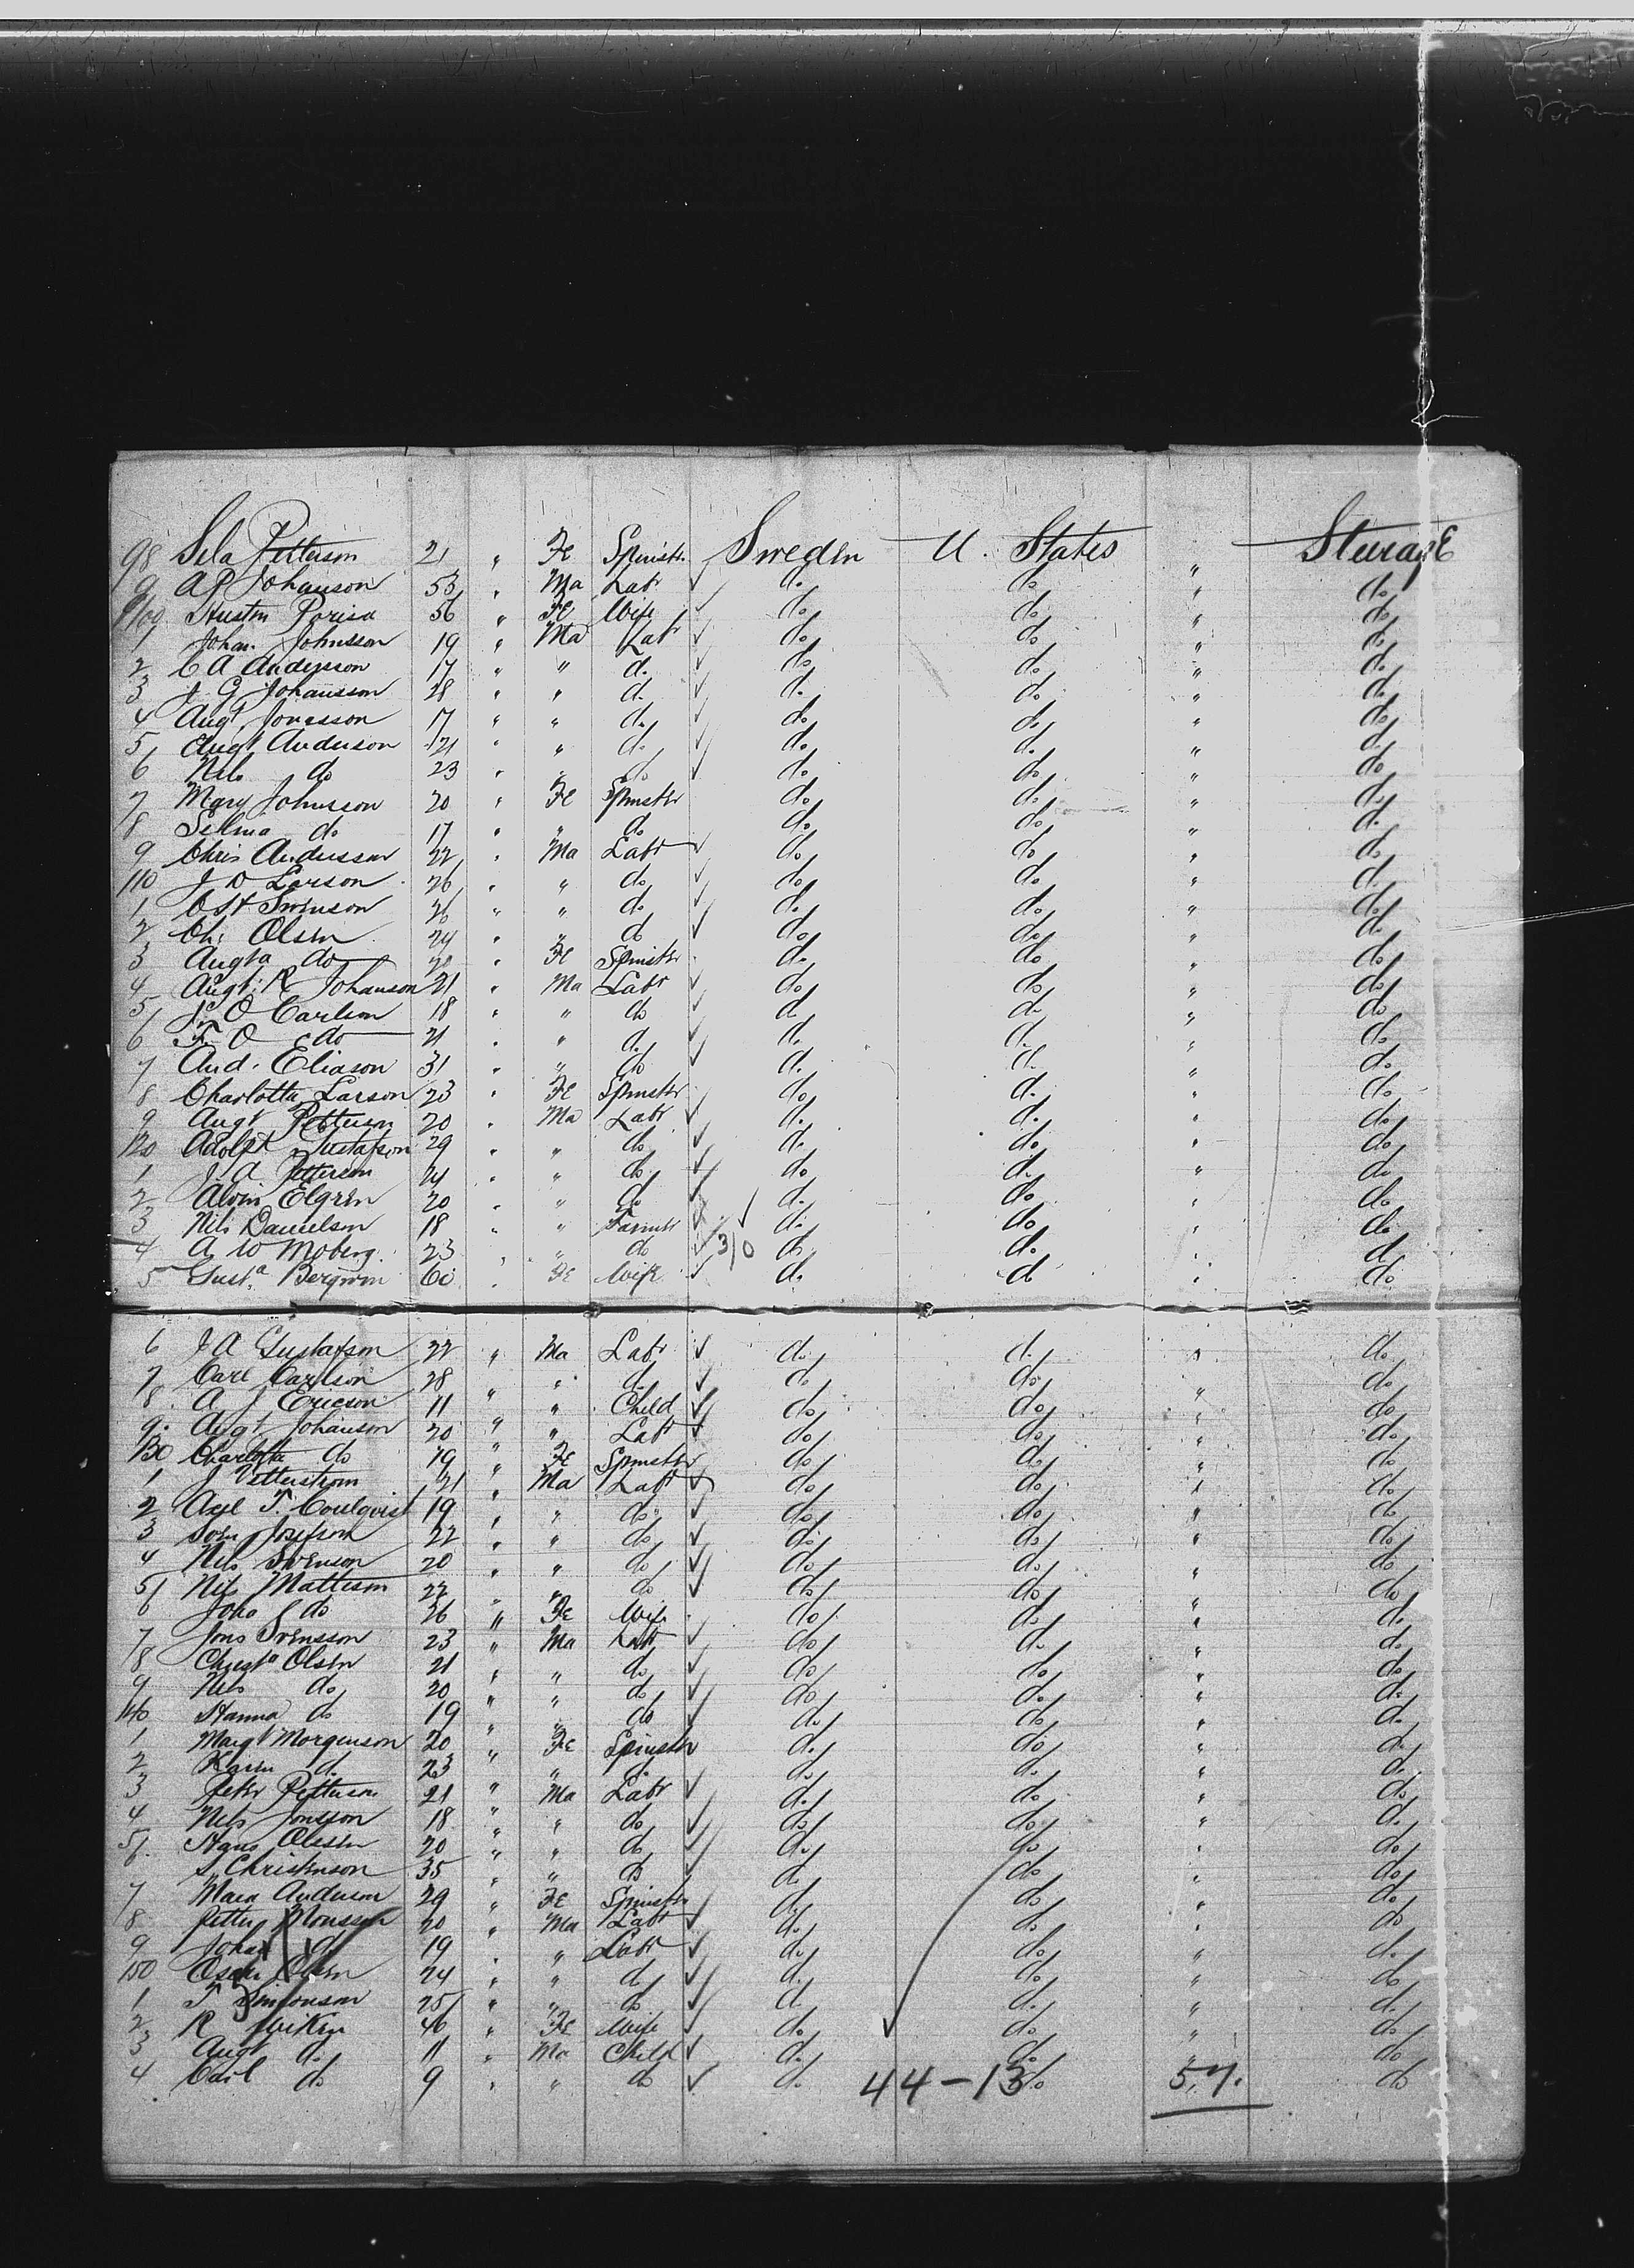 98 Sela Petterson 21 " Fe Spinstr. Sweden U. States " Sturage
9 A P Johanson 53 " Ma Labr ✓ do do " do
100 Austin Parisa 56 " Fe Wife ✓ do do " do
1 Johan Johnsson 19 " Ma Labr ✓ do do " do
2 C A Andersson 17 " " do ✓ do do " do
3 J G Johansson 28 " " do ✓ do do " do
4 Augt Jonasson 17 " " do ✓ do do " do
5 Augt Anderson 21 " " do ✓ do do " do
6 Nils do 23 " " do ✓ do do " do
7 Mary Johnsson 20 " Fe Spinstr do do " do
8 Selma do 17 " " do do do " do
9 Chris Andersson 22 " Ma Labr ✓ do do " do
110 J O Larson 26 " " do ✓ do do " do
1 C H Swenson 26 " " do ✓ do do " do
2 Ch: Olsen 24 " " do ✓ do do " do
3 Augta do 20 " Fe Spinstr do do " do
4 Augt: R Johanson 21 " Ma Labr ✓ do do " do
5 J. O Carlson 18 " " do ✓ do do " do
6 F. O do 21 " " do ✓ do do " do
7 And. Eliason 31 " " do ✓ do do " do
8 Charlotta Larson 23 " Fe Spinstr do do " do
9 Augt Petterson 20 " Ma Labr ✓ do do " do
120 Adolph Gustafson 29 " " do ✓ do do " do
1 J. A Petterson 24 " " do ✓ do do " do
2 Alvin Elgren 20 " " do ✓ do do " do
3 Nils Danielsen 18 " " Farmer ✓ ✓ do do " do
4 A W Moberg 23 " " do ✓ 3/0 do do " do
5 Gusta Bergwin 60 " Fe Wife ✓ do do " do
6 J A Gustafson 22 " Ma Labr ✓ do do " do
7 Carl Carlson 28 " " do ✓ do do " do
8 A J Ericson 11 " " Child ✓ do do " do
9 Augt Johanson 20 " " Labr ✓ do do " do
130 Charlotta do 19 " Fe Spinstr do do " do
1 J Vetterstrom 21 " Ma Labr ✓ do do " do
2 Axel T. 19 " " do ✓ do do " do
3 Josefson 22 " " do ✓ do do " do
4 Nils Svenson 20 " " do ✓ do do " do
5 Nils Matteson 22 " " do ✓ do do " do
6 Joha do 26 " Fe Wife do do " do
7 Jons Svensson 23 " Ma Labr ✓ do do " do
8 Christa Olsen 21 " " do ✓ do do " do
9 Nels do 20 " " do ✓ do do " do
140 Hanna do 19 " " do ✓ do do " do
1 Margt Morgenson 20 " Fe Spinstr do do " do
2 Karin do 23 " " do do do " do
3 Peter Petterson 21 " Ma Labr ✓ do do " do
4 Nels Jonsson 18 " " do ✓ do do " do
5 Hans Olessen 20 " " do ✓ do do " do
6 S. Christenson 35 " " do ✓ do do " do
7 Maria Anderson 29 " Fe Spinstr do do " do
8 Petter Monsson 20 " Ma Labr ✓ do do " do
9 Johan do 19 " " Labr ✓ do do " do
150 Oscar Olsen 24 " " do ✓ do do " do
1 T Simonson 25 " " do ✓ do do " do
2 R 46 " Fe Wife ✓ do do " do
3 Augt do 11 " Ma Child ✓ do do " do
4 Carl do 9 " " do ✓ do do do
44-13 57.